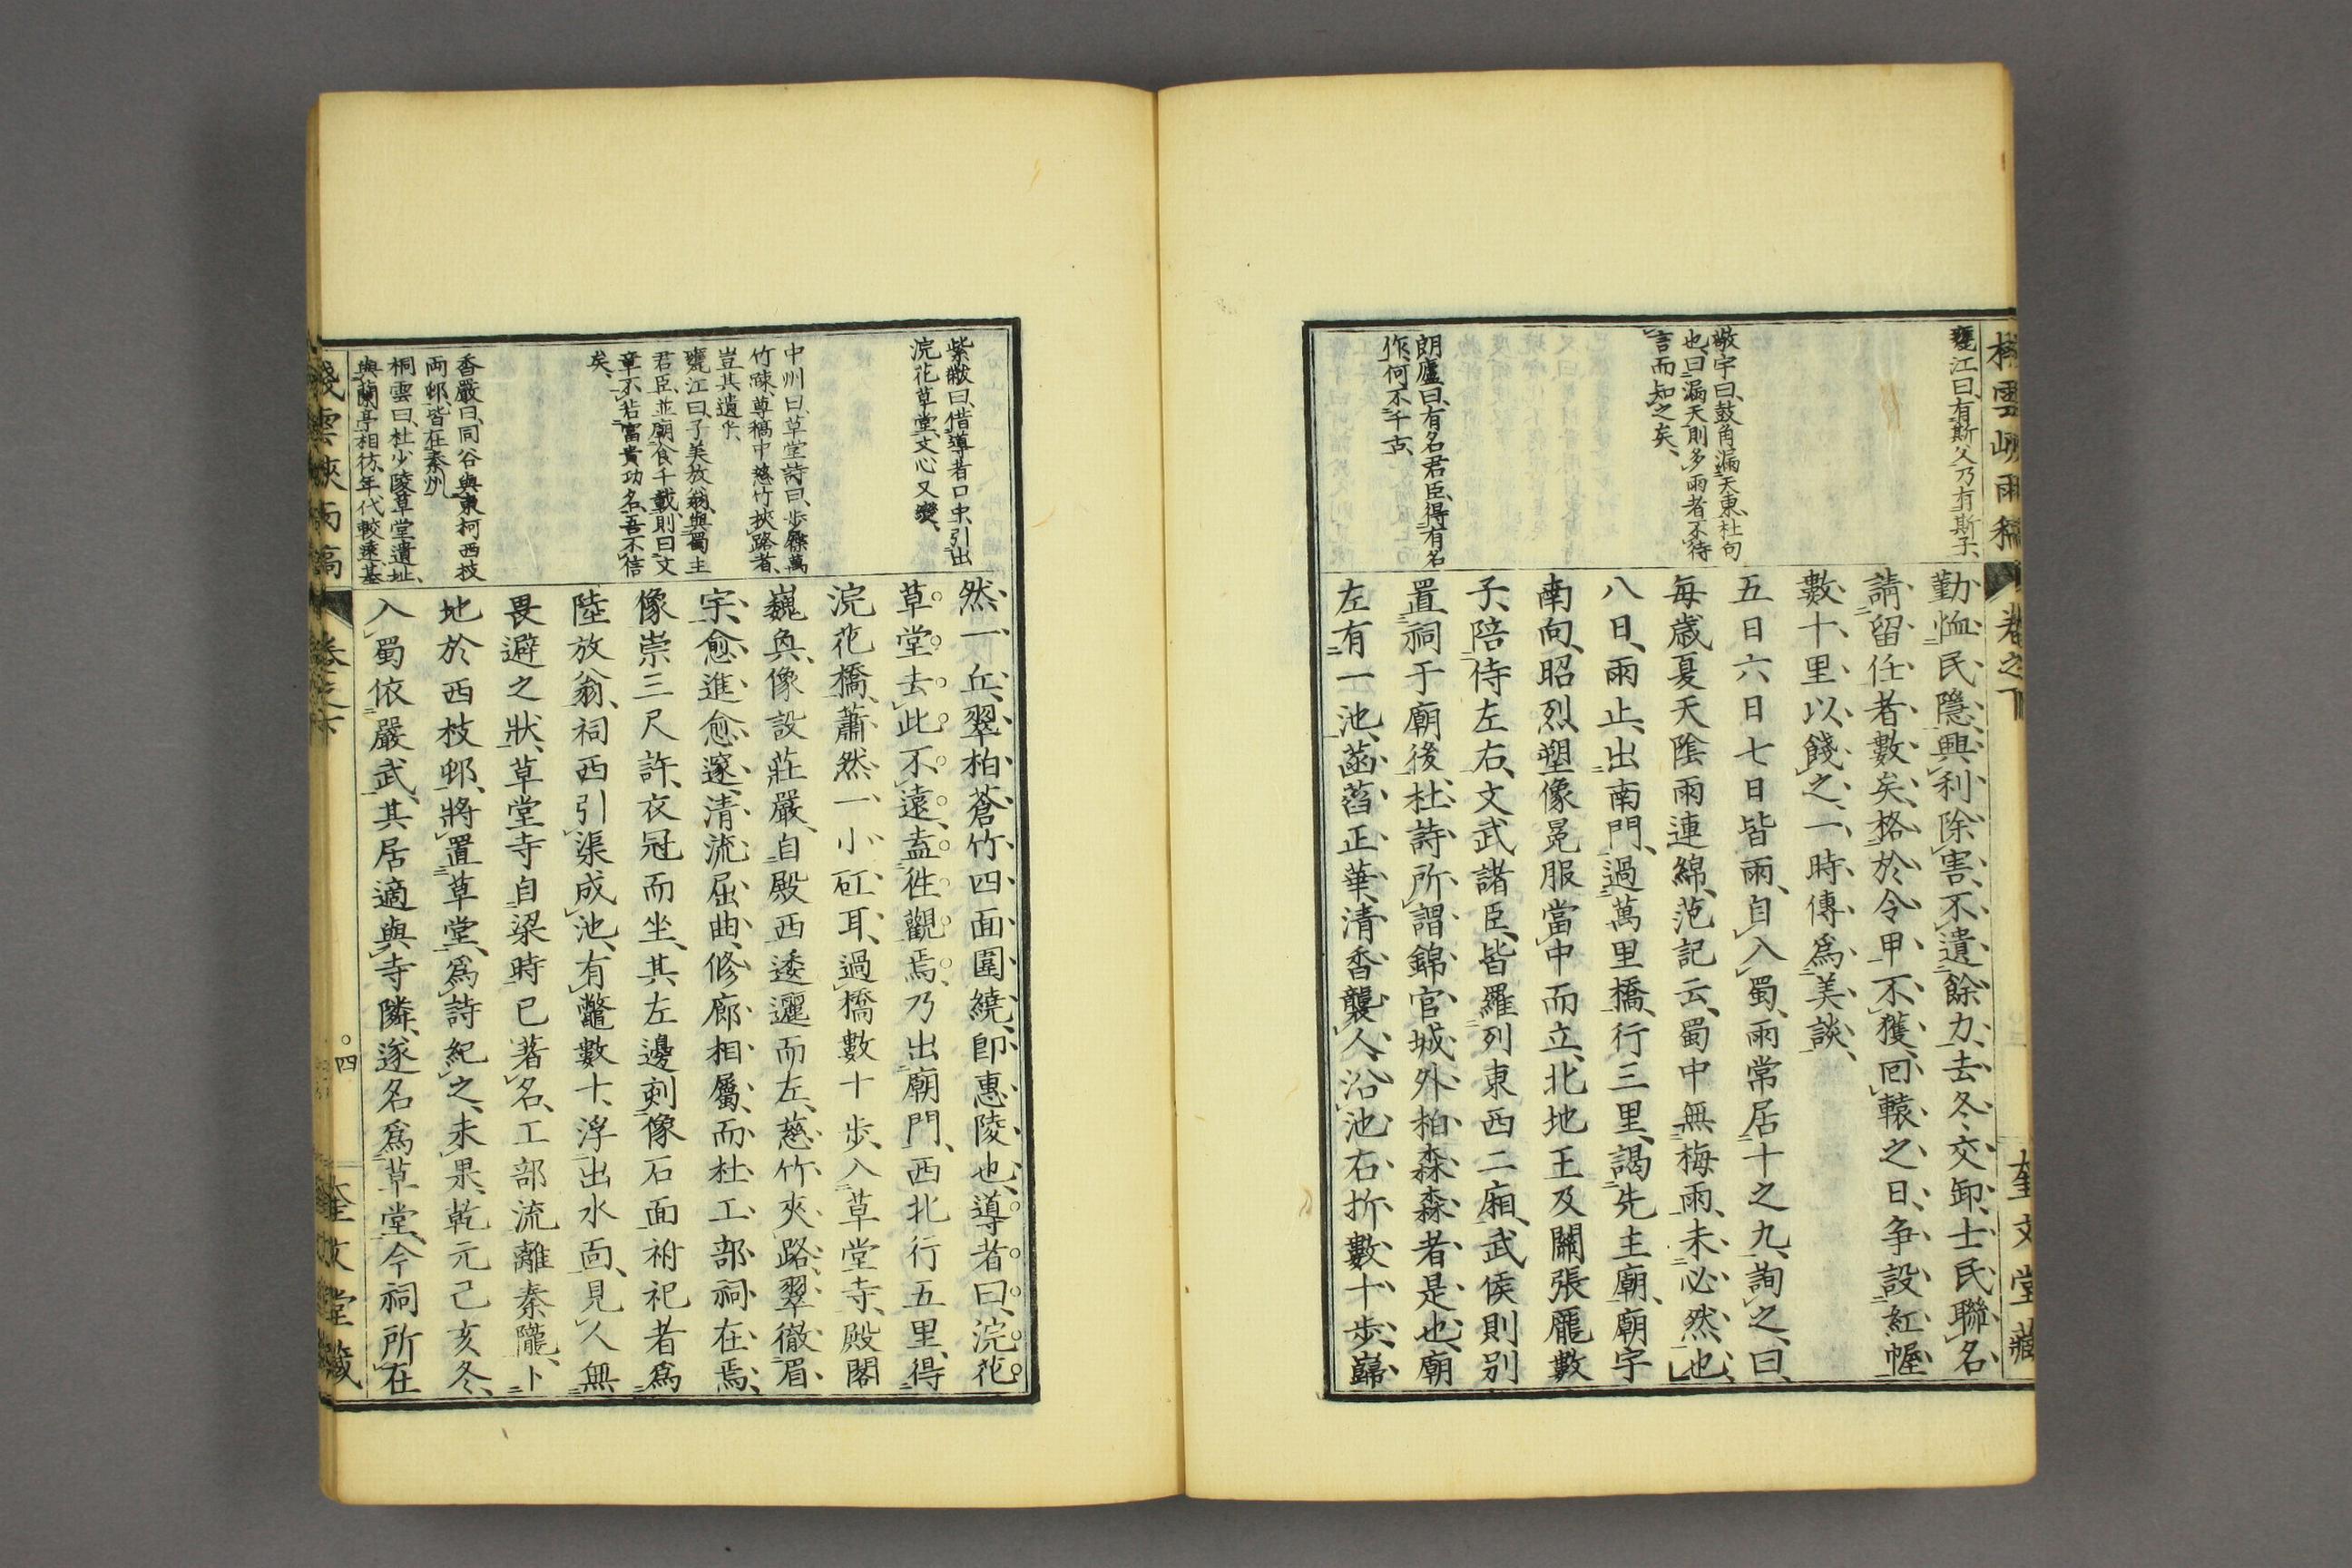 棧雲峽雨稿
卷之下
奎文堂藏
甕江曰、有斯父乃有斯子、
敬宇曰、鼓角漏天東、杜句
也、曰漏天則多雨者、不待
言而知之矣、
朗廬曰、有名君臣、得有名
作、何不千古、
勤恤民隱、興利除害、不遺餘力、去冬交卸、士民聯名
請留任者數矣、格於令甲不獲、囘轅之日、争設紅幄
數十里以餞之、一時傳爲美談、
五日六日七日皆雨、自入蜀、雨常居十之九、詢之、曰、
每歳夏天陰雨連綿、范記云、蜀中無梅雨、未必然也、
八日、雨止、出南門、過萬里橋、行三里、謁先主廟、廟宇
南向、昭烈塑像冕服當中而立、北地王及關張龐數
子、陪侍左右、文武諸臣、皆羅列東西二廂、武侯則别
置祠于廟後、杜詩所謂錦官城外柏森森者是也、廟
左有一池、菡萏正華、清香襲人、沿池右折數十歩、巋
然一丘、翠柏蒼竹四面圍繞、卽惠陵也、導者曰、浣花
草堂去此不遠、盍徃觀焉、乃出廟門、西北行五里、得
浣花橋、蕭然一小矼耳、過橋數十歩、入草堂寺、殿閣
巍奐、像設莊嚴、自殿西逶邐而左、慈竹夾路、翠徹眉
宇、愈進愈邃、清流屈曲、修廊相屬、而杜工部祠在焉、
像崇三尺許、衣冠而坐、其左邊刻像石面祔祀者爲
陸放翁、祠西引渠成池、有鼈數十、浮出水面、見人無
畏避之狀、草堂寺自梁時已著名、工部流離秦隴、卜
地於西枝邨、將置草堂、爲詩紀之、未果、乾元己亥冬、
入蜀依嚴武、其居適與寺隣、遂名爲草堂、今祠所在
紫瀲曰、借導者口中、引出
浣花草堂、文心又變、
中州曰、草堂詩曰、步屧萬
竹疎、尊稿中慈竹挾路者、
豈其遺乎、
甕江曰、子美放翁、與蜀主
君臣、並廟食千載、則曰文
章不若富貴功名、吾不信
矣、
香嚴曰、同谷與東柯西枝
両邨、皆在秦州
桐雲曰、杜少陵草堂遺址、
與蘭亭相彷、年代較遠、基
棧雲峽雨稿
卷之下
四
奎文堂藏